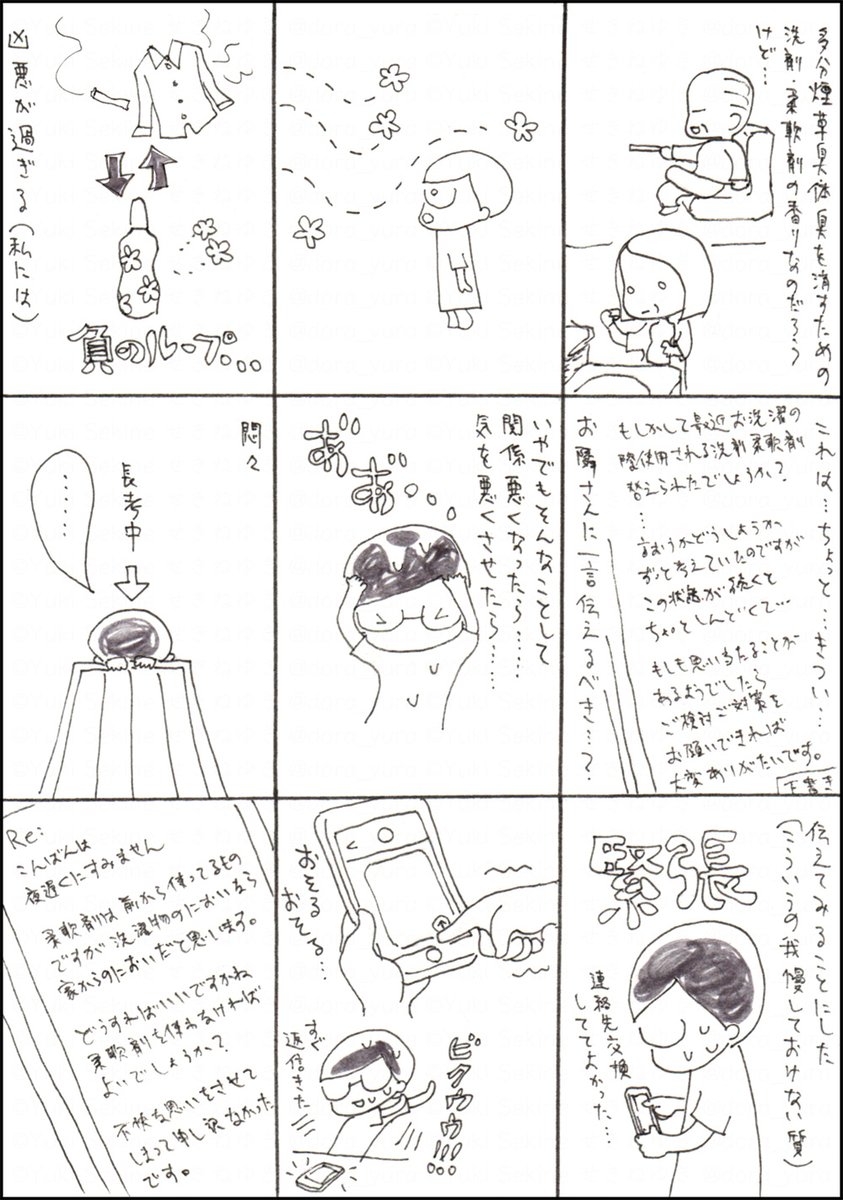 多分煙草臭体臭を消すための
洗剤・柔軟剤の香りなのだろう
けど…
凶悪が過ぎる(私には)
負のループ…
これは…ちょっと…きつい…
もしかして最近お洗濯の
際使用される洗剤柔軟剤
替えられたでしょうか?
……言おうかどうしようか
ずっと考えていたのですが
この状態が続くと
ちょっとしんどくて…
もしも思い当たることが
あるようでしたら
ご検討ご対策を
お願いできれば
大変ありがたいです。
下書き
お隣さんに一言伝えるべき…?
いやでもそんなことして
関係悪くなったら……
気を悪くさせたら……
ああ゛
あ゛あ゛…
悶々
長考中
……
伝えてみることにした
(こういうの我慢しておけない質)
緊張
連絡先交換
しててよかった…
おそる
おそる…
ビクゥゥ!!!
すぐ
返信きた
Re:
こんばんは
夜遅くにすみません
柔軟剤は前から使ってるもの
ですが洗濯物のにおいなら
家からのにおいだと思います。
どうすればいいですかね
柔軟剤を使わなければ
よいでしょうか?
不快な思いをさせて
しまって申し訳なかった
です。